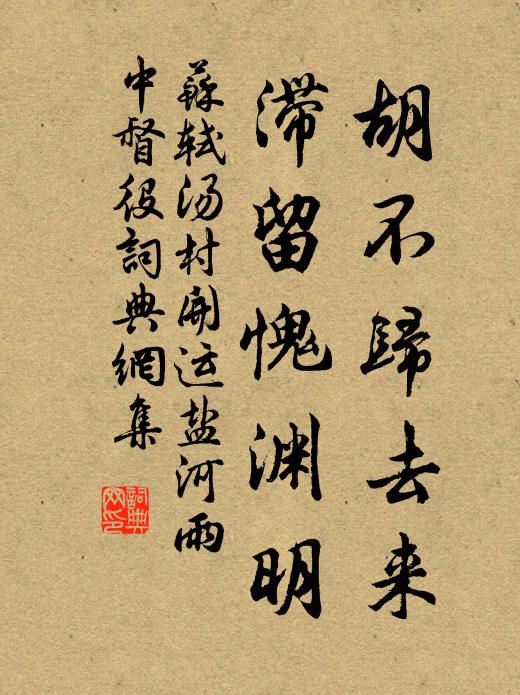 胡不歸去来
滞留愧渊明
蘇轼汤村開运盐河雨
中督役詞典網集
詞典
网印